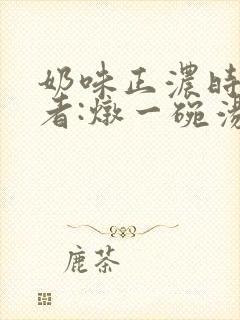 奶味正濃時
者:燉一碗湯
鹿茶